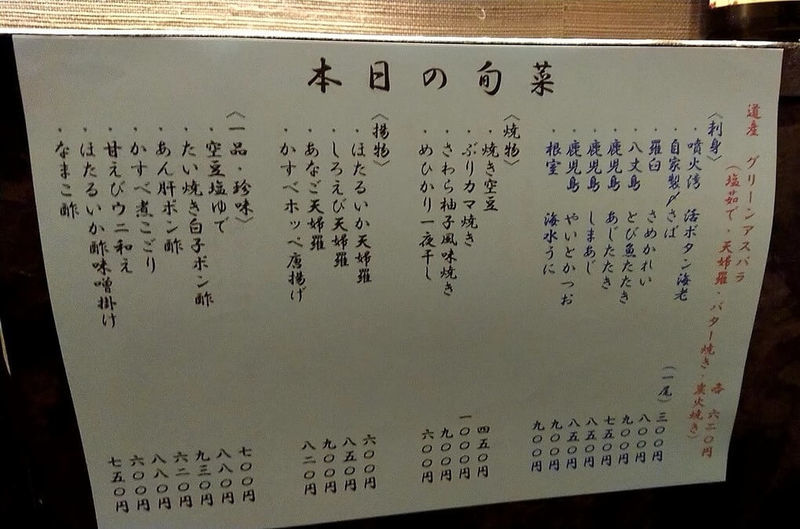 本日の旬菜
道産 グリーンアスパラ
(塩茹で・天婦羅・バター焼き・炭火焼き) 各 六二〇円
〈刺身〉
・噴火湾 活ボタン海老 (一尾) 三〇〇円
・自家製〆さば 八〇〇円
・羅臼 さめかれい 九〇〇円
・八丈島 とび魚たたき 七五〇円
・鹿児島 あじたたき 八五〇円
・鹿児島 しまあじ 八五〇円
・鹿児島 やいとかつお 九〇〇円
・根室 海水うに 九〇〇円
〈焼物〉
・焼き空豆 四五〇円
・ぶりカマ焼き 一〇〇〇円
・さわら柚子風味焼き 九〇〇円
・めひかり一夜干し 六〇〇円
〈揚物〉
・ほたるいか天婦羅 六〇〇円
・しろえび天婦羅 八五〇円
・あなご天婦羅 九〇〇円
・かすべホッペ唐揚げ 八二〇円
〈一品・珍味〉
・空豆塩ゆで 七〇〇円
・たい焼き白子ポン酢 八八〇円
・あん肝ポン酢 九三〇円
・かすべ煮こごり 六二〇円
・甘えびウニ和え 八八〇円
・ほたるいか酢味噌掛け 六〇〇円
・なまこ酢 七五〇円